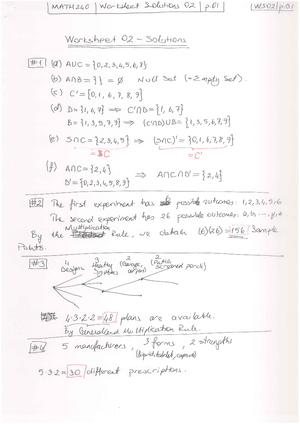 MATH240 | Worksheet Solutions 02 | p.01
WS02 p.01
Worksheet 02 - Solutions
#1 (a) AUC = {0,2,3,4,5,6,8}
(b) A∩B = { } = ∅ Null Set (= Empty Set).
(c) C' = {0,1,6,7,8,9}
(d) D = {1,6,7} ⟹ C'∩D = {1,6,7}
B = {1,3,5,7,9} ⟹ (C'∩D)UB = {1,3,5,6,7,9}
(e) S∩C = {2,3,4,5} ⟹ (S∩C)' = {0,1,6,7,8,9}
= C = C'
(f) A∩C = {2,4} ⟹ A∩C∩D' = {2,4}
D' = {0,2,3,4,5,8,9}
#2 The first experiment has 6 possible outcomes: 1,2,3,4,5,6
The second experiment has 26 possible outcomes: a,b,...,y,z
By the Multiplication Rule, we obtain (6)(26) = 156 Sample
Points.
#3 4 Designs 3 Heating Systems 2 (Garage, carport) 2 (Patio, Screened porch)
4.3.2.2 = 48 plans are available.
By Generalized Multiplication Rule.
#4 5 manufacturers, 3 forms, 2 strengths
(liquid, tablet, capsule)
5.3.2 = 30 different prescriptions.